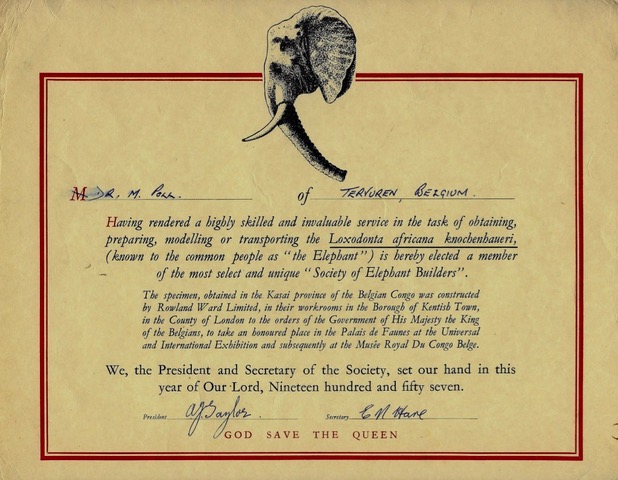 M DR. M. POLL. of TERVUREN, BELGIUM.
Having rendered a highly skilled and invaluable service in the task of obtaining,
preparing, modelling or transporting the Loxodonta africana knochenhaueri,
(known to the common people as "the Elephant") is hereby elected a member
of the most select and unique "Society of Elephant Builders".
The specimen, obtained in the Kasai province of the Belgian Congo was constructed
by Rowland Ward Limited, in their workrooms in the Borough of Kentish Town,
in the County of London to the orders of the Government of His Majesty the King
of the Belgians, to take an honoured place in the Palais de Faunes at the Universal
and International Exhibition and subsequently at the Musée Royal Du Congo Belge.
We, the President and Secretary of the Society, set our hand in this
year of Our Lord, Nineteen hundred and fifty seven.
President Secretary E N Hare
GOD SAVE THE QUEEN